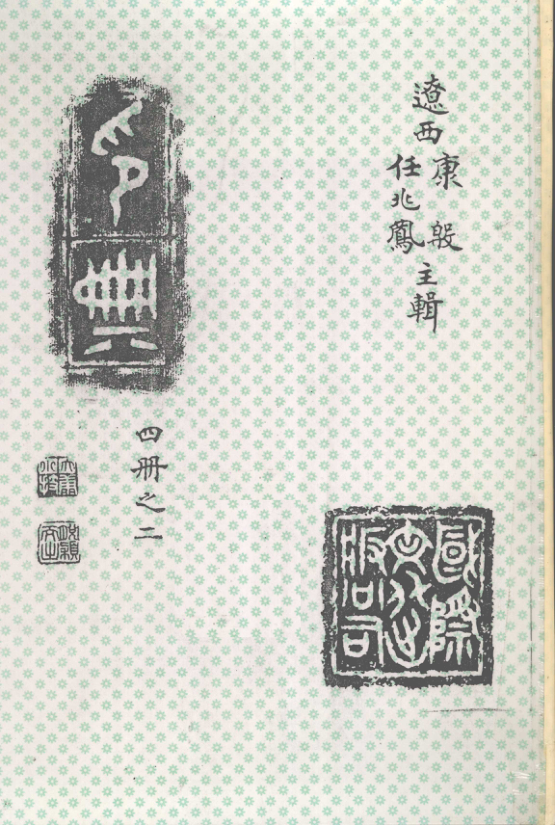 遼西
康殷
任兆鳳
主輯
印典
四册之二
國際
文化出
版公司